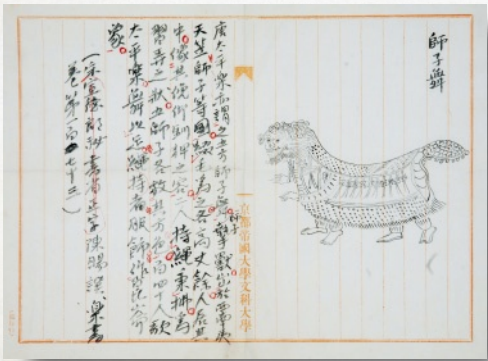 師子舞
京都帝國大學文科大學
唐太平樂亦謂之五方師子舞師子摯獸出於西南夷
天竺師子等國綴毛為之各高丈餘人居其
中像其俛仰馴狎之容二人持繩秉拂為
習弄之狀五師子各放其方色百四十人歌
太平樂舞以足繩持者服飾作崑崙
象
(宋宣德郎秘書省正字陳暘譔樂書
巻第一百七十三)